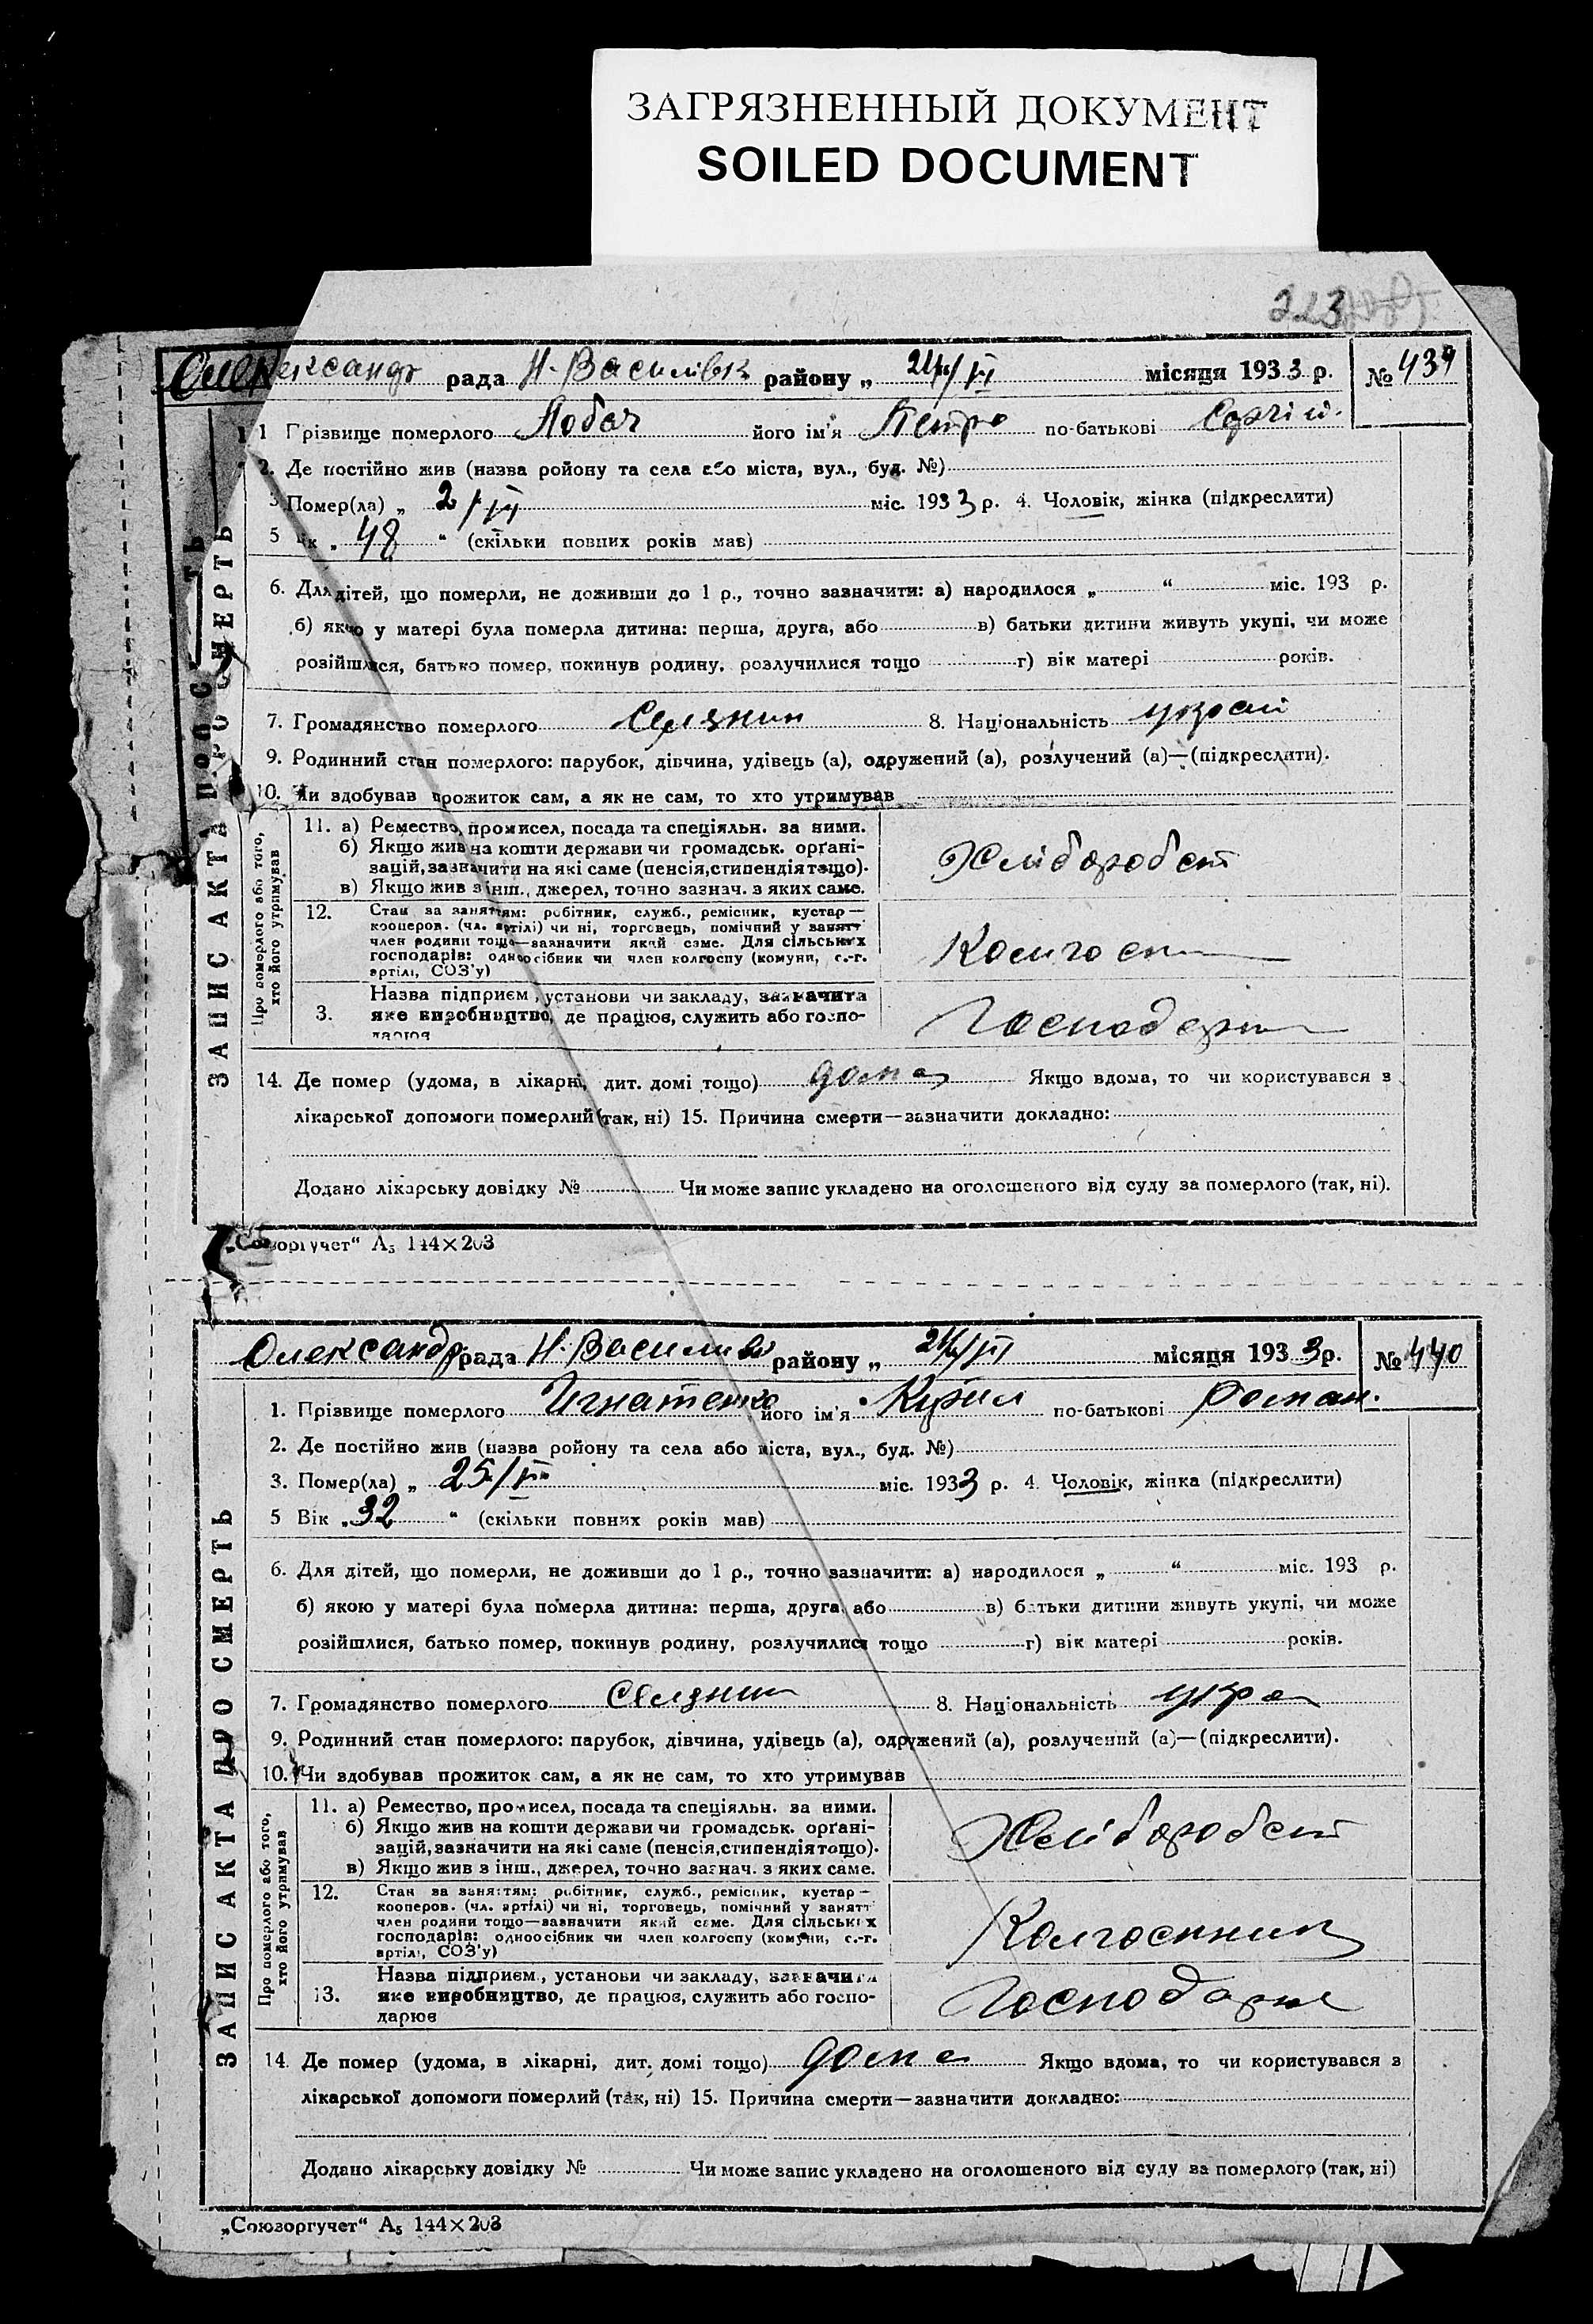 ЗАГРЯЗНЕННЫЙ ДОКУМЕНТ
SOILED DOCUMENT
223
Олександр рада Н-Василівк району „ 24/III місяця 1933 р. № 439
1 Прізвище померлого Лобач його ім'я Петро по-батькові Сергій.
2. Де постійно жив (назва ройону та села або міста, вул., буд. №)
3 Помер(ла) „ 2/III міс. 1933 р. 4. Чоловік, жінка (підкреслити)
5 Вік „ 48 “ (скільки повних років мав)
6. Для дітей, що померли, не доживши до 1 р., точно зазначити: а) народилося „ “ міс. 193 р.
б) якою у матері була померла дитина: перша, друга, або в) батьки дитини живуть укупі, чи може
розійшлися, батько помер, покинув родину, розлучилися тощо г) вік матері років.
7. Громадянство померлого Селянин 8. Національність украї
9. Родинний стан померлого: парубок, дівчина, удівець (а), одружений (а), розлучений (а)—(підкреслити).
10. Чи здобував прожиток сам, а як не сам, то хто утримував
Про померлого або того, хто його утримував
11. а) Ремество, промисел, посада та спеціяльн. за ними.
б) Якщо жив на кошти держави чи громадськ. орґані-
зацій, зазначити на які саме (пенсія, стипендія тощо).
в) Якщо жив з інш., джерел, точно зазнач. з яких саме.
Хлібороб
12. Стан за заняттям: робітник, служб., ремісник, кустар—
кооперов. (чл. артілі) чи ні, торговець, помічний у занятт
член родини тощо—зазначити який саме. Для сільських
господарів: одноосібник чи член колгоспу (комуни, с.-г.
артілі, СОЗ'у)
Колгосп
3. Назва підприєм., установи чи закладу, зазначита
яке виробництво, де працює, служить або госпо-
дарює
Господар
14. Де помер (удома, в лікарні, дит. домі тощо) дома Якщо вдома, то чи користувався з
лікарської допомоги померлий (так, ні) 15. Причина смерти—зазначити докладно:
Додано лікарську довідку № Чи може запис укладено на оголошеного від суду за померлого (так, ні).
ЗАПИС АКТА ПРО СМЕРТЬ
„Союзоргучет“ А₅ 144×203
Олександр рада Н-Василів району „ 24/III місяця 1933 р. № 440
1. Прізвище померлого Игнатенко його ім'я Кирил по-батькові Роман.
2. Де постійно жив (назва ройону та села або міста, вул., буд. №)
3. Помер(ла) „ 25/II міс. 1933 р. 4. Чоловік, жінка (підкреслити)
5 Вік „ 32 “ (скільки повних років мав)
6. Для дітей, що померли, не доживши до 1 р., точно зазначити: а) народилося „ “ міс. 193 р.
б) якою у матері була померла дитина: перша, друга, або в) батьки дитини живуть укупі, чи може
розійшлися, батько помер, покинув родину, розлучилися тощо г) вік матері років.
7. Громадянство померлого Селянин 8. Національність укра
9. Родинний стан померлого: парубок, дівчина, удівець (а), одружений (а), розлучений (а)—(підкреслити).
10. Чи здобував прожиток сам, а як не сам, то хто утримував
Про померлого або того, хто його утримував
11. а) Ремество, промисел, посада та спеціяльн. за ними.
б) Якщо жив на кошти держави чи громадськ. орґані-
зацій, зазначити на які саме (пенсія, стипендія тощо).
в) Якщо жив з інш., джерел, точно зазнач. з яких саме.
Хлібороб
12. Стан за заняттям: робітник, служб., ремісник, кустар—
кооперов. (чл. артілі) чи ні, торговець, помічний у занятт
член родини тощо—зазначити який саме. Для сільських
господарів: одноосібник чи член колгоспу (комуни, с.-г.
артілі, СОЗ'у)
Колгоспник
13. Назва підприєм., установи чи закладу, зазначити
яке виробництво, де працює, служить або госпо-
дарює
Господарює
14. Де помер (удома, в лікарні, дит. домі тощо) дома Якщо вдома, то чи користувався з
лікарської допомоги померлий (так, ні) 15. Причина смерти—зазначити докладно:
Додано лікарську довідку № Чи може запис укладено на оголошеного від суду за померлого (так, ні)
ЗАПИС АКТА ПРО СМЕРТЬ
„Союзоргучет“ А₅ 144×203